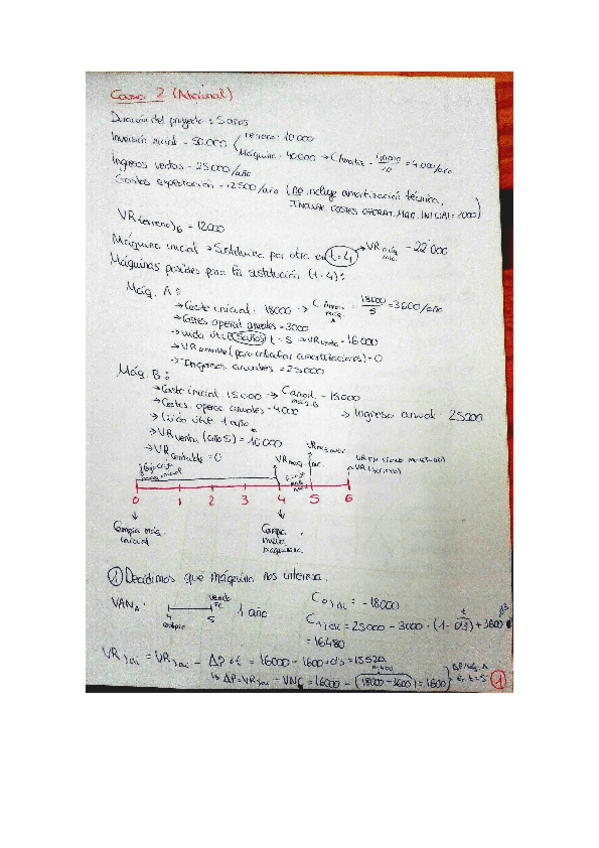 Caso 2 (Normal)
Duración del proyecto: 5 años
Inversión inicial = 50.000 terreno: 10.000
Máquina: 40.000 → = 4.000/año
Ingresos ventas = 25.000/año
Gastos explotación = 12500/año (no incluye amortización técnica,
INCLUYE COSTES OPERAT. MAQ. INICIAL = 1000)
VR (terreno)6 = 12000
Máquina inicial → Sustituirla por otra en t=4 → VR máq. = 22.000
Máquinas posibles para la sustitución (t=4):
Máq. A:
→ Coste inicial: 18000 → C Amort. máq. A = 18000/5 = 3600/año
→ Costes operat anuales = 3000
→ Vida útil (5 años) t = 5 → VR venta = 16000
→ VR contable (para calcular amortizaciones) = 0
→ Ingresos anuales = 25000
Máq. B:
→ Coste inicial 15000 → C amort. máq. B = 15000
→ Costes operat anuales = 4000 → Ingreso anual 25000
→ Vida útil 1 año
→ VR venta (año 5) = 10000
→ VR contable = 0
VR máq. inic.
VR (terreno)
0 1 2 3 4 5 6
Compra máq. inicial
Compra nueva máquina
① Decidimos que máquina nos interesa.
VAN A: 4 compra 5 1 año
C0 = -18000
C1 = 25000 - 3000 · (1 - 0'3) + 3600 · 0'3
= 16480
VR = VR - ΔP · t = 16000 - 1600 · 0'3 = 15520
→ ΔP = VR - VNC = 16000 - (18000 - 3600) = 1600
1